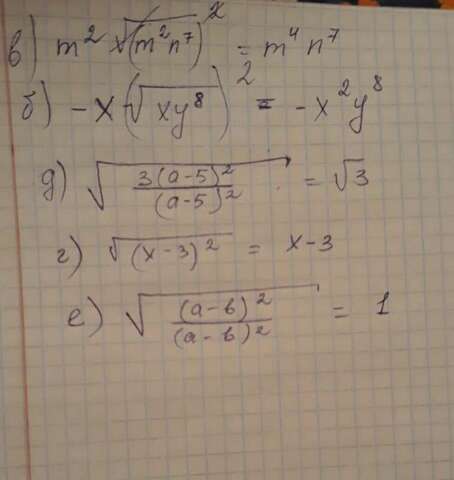 в) m² √(m²n⁷)² = m⁴ n⁷
б) -x (√xy⁸)² = -x²y⁸
д) √(3(a-5)²/(a-5)²) = √3
г) √(x-3)² = x-3
е) √((a-b)²/(a-b)²) = 1